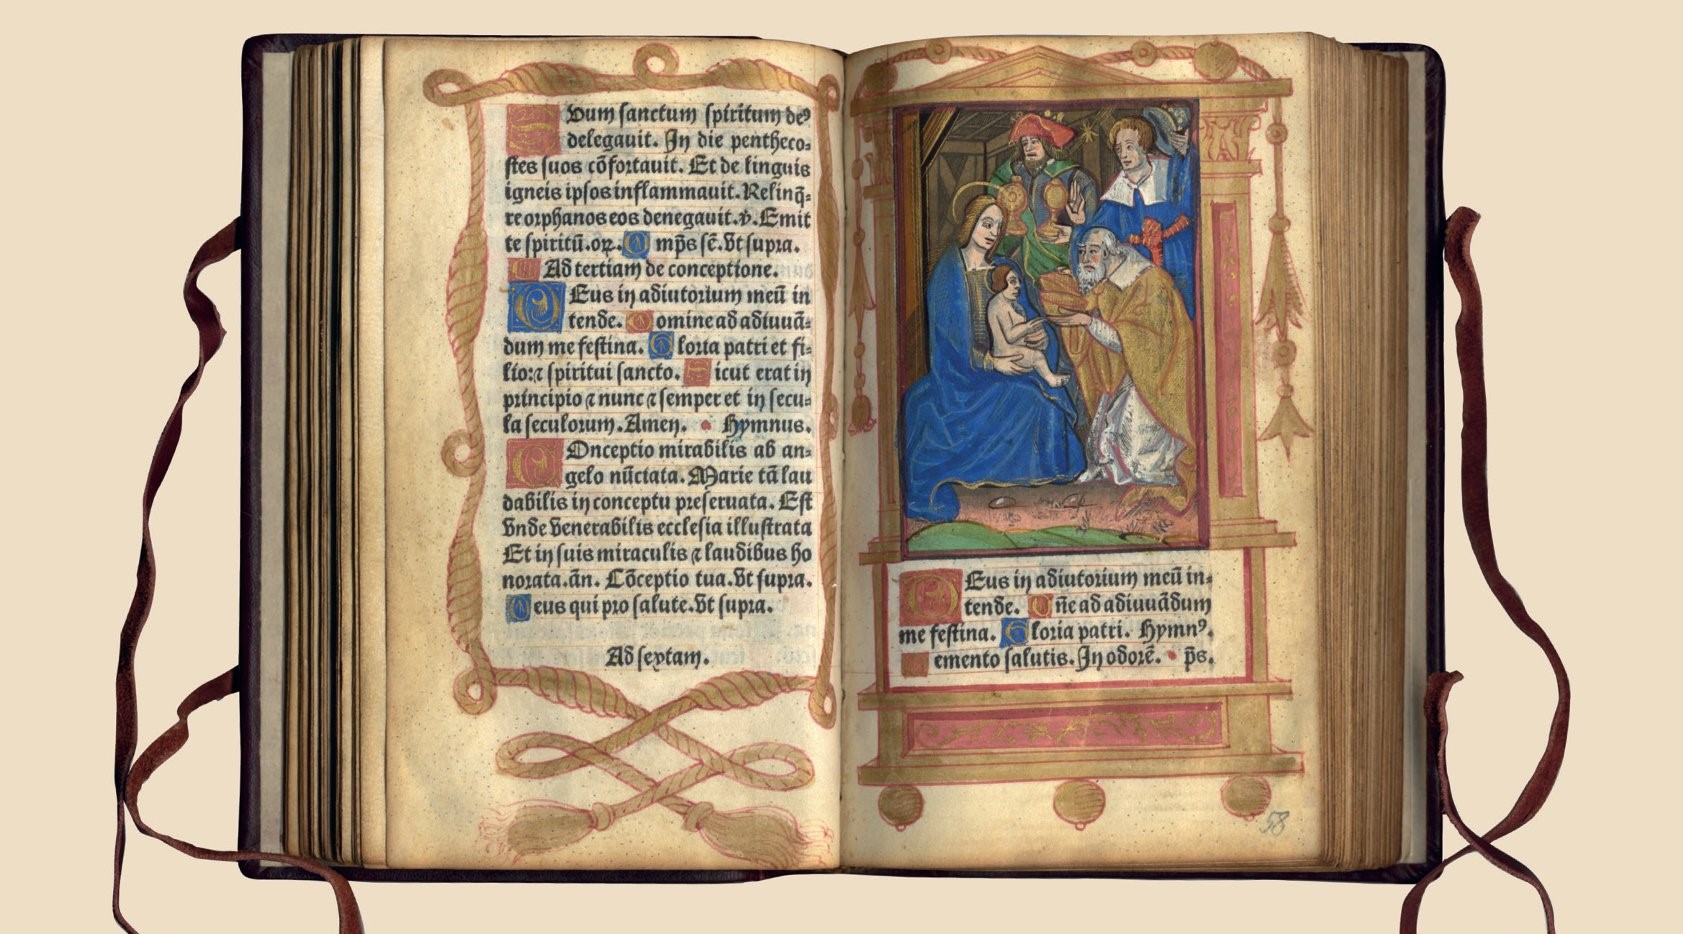 Suum sanctum spiritum deꝰ
delegauit. In die pentheco-
stes suos cõfortauit. Et de linguis
igneis ipsos inflammauit. Relinq̃-
re orphanos eos denegauit. ℣. Emit
te spiritũ. oꝛ. Om̃ps sẽ. Vt supra.
Ad tertiam de conceptione.
DEus in adiutorium meũ in
tende. Domine ad adiuuã-
dum me festina. Gloria patri et fi-
lio: ⁊ spiritui sancto. Sicut erat in
principio ⁊ nunc ⁊ semper et in secu-
la seculorum. Amen. Hymnus.
COnceptio mirabilis ab an-
gelo nũctata. Marie tã lau
dabilis in conceptu preseruata. Est
Vnde Venerabilis ecclesia illustrata
Et in suis miraculis ⁊ laudibus ho
norata. ãn. Cõceptio tua. Vt supra.
Deus qui pro salute. Vt supra.
Ad sextam.
DEus in adiutorium meũ in-
tende. Dñe ad adiuuãdum
me festina. Gloria patri. Hymnꝰ.
Memento salutis. In odorẽ. p̃s.
58